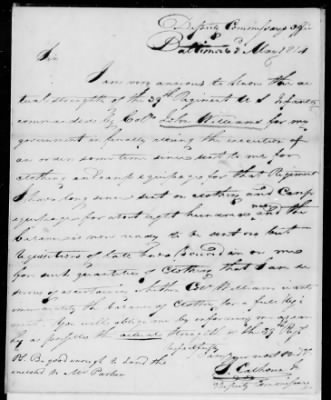 Deputy Commissary's Office
Baltimore 2 May 1814
Sir
I am very anxious to know the ac
tual strength of the 39th Regiment U S Infantry
commanded by Colo. John Williams for my
government in finally closing the execution of
an order some time since sent to me for
clothing and camp equipage for that Regiment
I have long since sent on clothing and Camp
equipage for about eight hundred men and the
balance is now ready to be sent on but
requisitions of late have on me
for such quantities of Clothing that I am de
sirous of ascertaining whether Col Williams wants
the balance of Clothing for a full Regi
ment. You will oblige me by informing me
as possible the actual Strength of the 39th Regt
Respectfully
I am your most Ob St
J. Calhoun Jr
Deputy Commissary
Be good enough to hand the
enclosed to Mr Parker